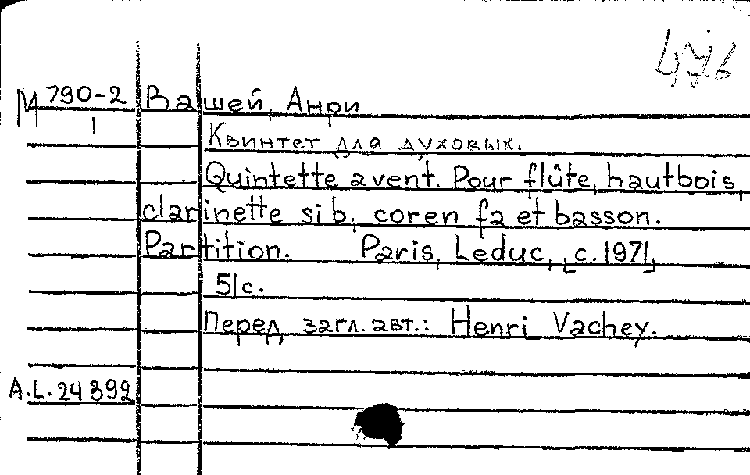 476
М 790-2 Вашей, Анри
1
Квинтет для духовых.
Quintette a vent. Pour flûte, hautbois,
clarinette si b, cor en fa et basson.
Partition. Paris, Leduc, [c. 1971]
51 с.
Перед загл. авт.: Henri Vachey.
A.L. 24 892